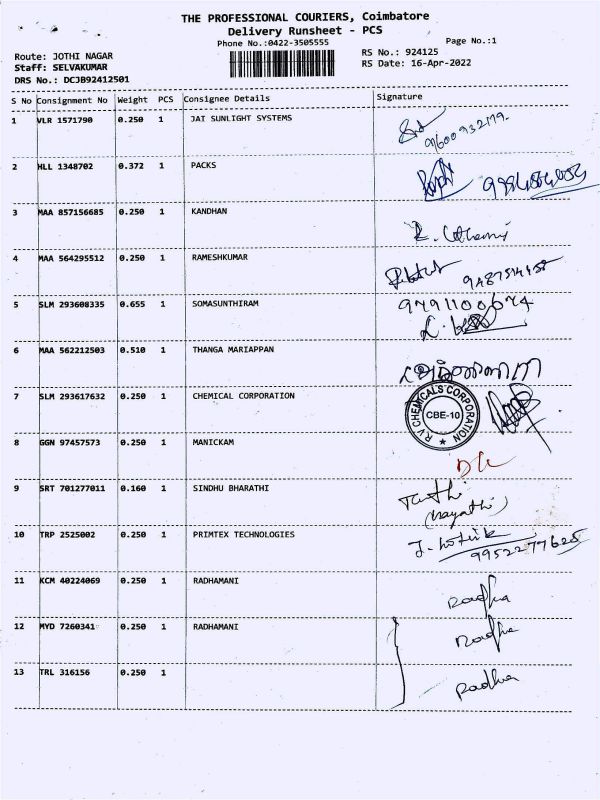 THE PROFESSIONAL COURIERS, Coimbatore
Delivery Runsheet - PCS
Phone No.:0422-3505555
Page No.:1
Route: JOTHI NAGAR
Staff: SELVAKUMAR
DRS No.: DCJB92412501
RS No.: 924125
RS Date: 16-Apr-2022
S No Consignment No Weight PCS Consignee Details Signature
1 VLR 1571790 0.250 1 JAI SUNLIGHT SYSTEMS
9600932179.
2 HLL 1348702 0.372 1 PACKS
3 MAA 857156685 0.250 1 KANDHAN
4 MAA 564295512 0.250 1 RAMESHKUMAR
5 SLM 293608335 0.655 1 SOMASUNTHIRAM
9791100674
6 MAA 562212503 0.510 1 THANGA MARIAPPAN
7 SLM 293617632 0.250 1 CHEMICAL CORPORATION
R.V CHEMICALS CORPORATION
CBE-10
8 GGN 97457573 0.250 1 MANICKAM
9 SRT 701277011 0.160 1 SINDHU BHARATHI
10 TRP 2525002 0.250 1 PRIMTEX TECHNOLOGIES
9952277625
11 KCM 40224069 0.250 1 RADHAMANI
Radha
12 MYD 7260341 0.250 1 RADHAMANI
Radha
13 TRL 316156 0.250 1
Radha